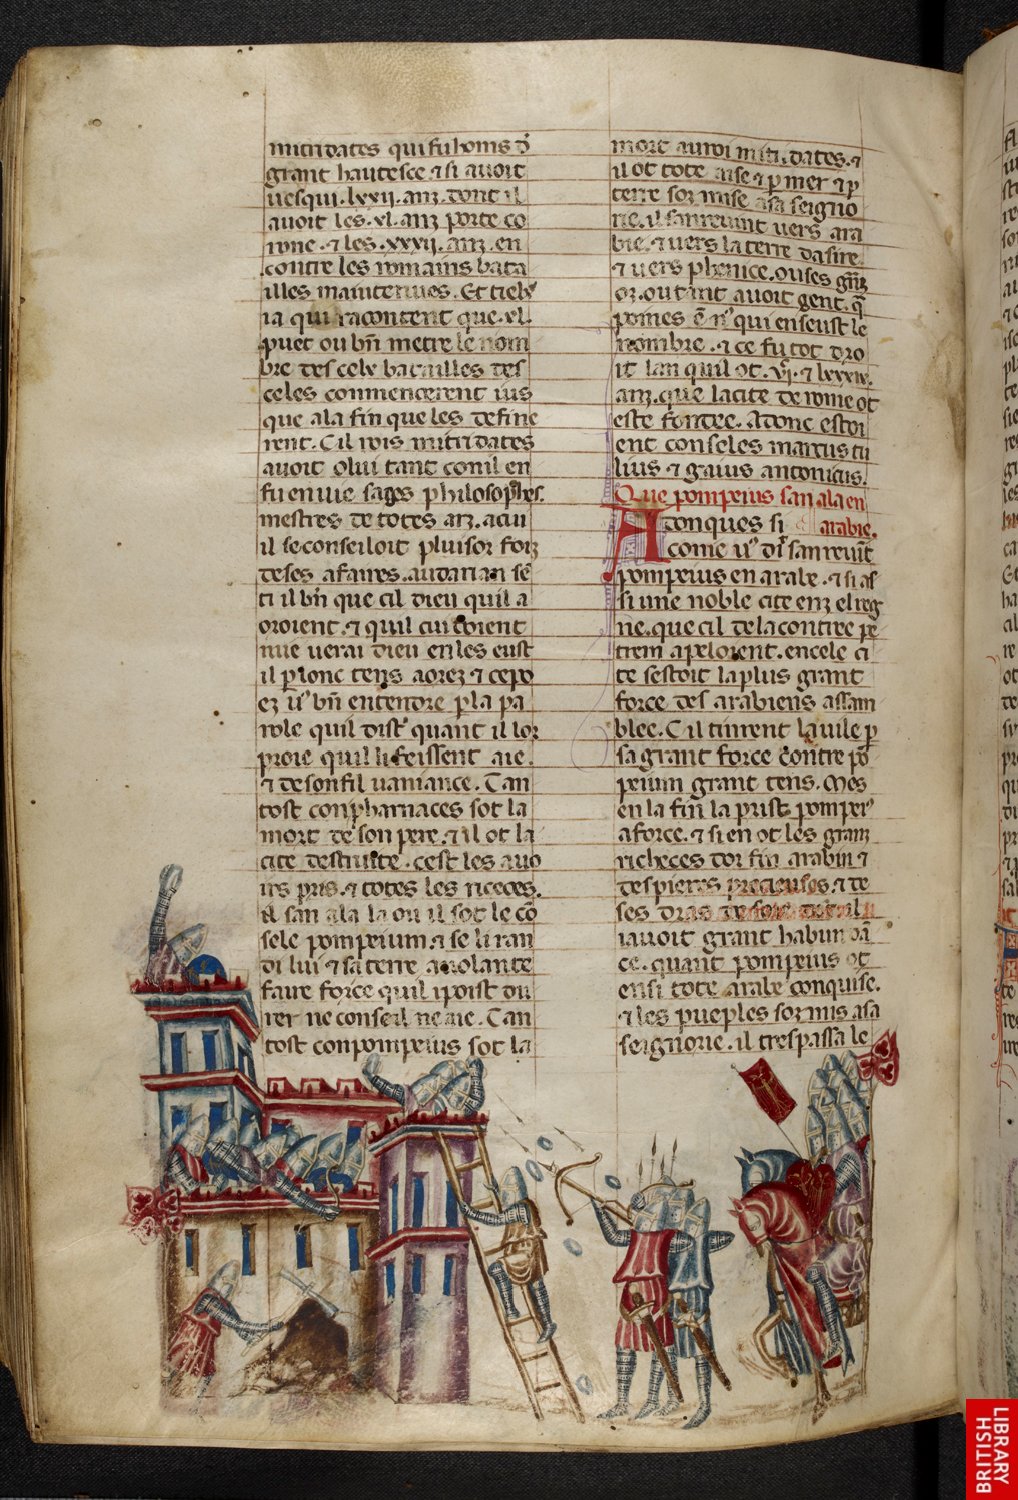 mitridates qui fu homs d̄
grant hautesce. ⁊ si auoit
uesqui. lxxij. anz. dont il
auoit les. xl. anz porte co
rone. ⁊ les. xxxij. anz. en
contre les romains bata
illes maintenues. Et tielx
ia qui racontent que. xl.
puet on bn̄ metre le nom
bre des celx batailles des
celes conmencerent ius
que a la fin que les define
rent. Cil rois mitridates
auoit o lui tant com il en
fu en uie sages philosophes.
mestres de totes arz. a cui
il se conseiloit pluisor foiz
de ses afaires.
ti il bn̄ que cil dieu quil a
oroient. ⁊ quil cuidoient
nue uerai dieu en les eust
il p̄ lonc tens aorez ⁊ ce po
ez us bn̄ entendre p̄ la pa
role quil dist quant il lor
proie quil li feissent aie.
⁊ de son fil uaniance. Tan
tost con pharnaces sot la
mort de son pere. ⁊ il ot la
cite destruite. cest les auo
irs pris. ⁊ totes les riceces.
il san ala la ou il sot le cō
sele pompeium. ⁊ se li ran
di lui ⁊ sa terre a uolante
faire force quil i poist du
rer ne conseil ne aie. Tan
tost con pompeius sot la
mort au roi mitridates. ⁊
il ot tote aise ⁊ p̄ mer ⁊ p̄
terre soz mise a sa seigno
rie. il san reuint uers ara
bie. ⁊ uers la terre da sire.
⁊ uers phenice. ou ses
oz. ou tant auoit gent. q̄
pomes
nombre. ⁊ ce fu tot dro
it lan quil ot. vj. ⁊ lxxxix.
anz. que la cite de rome ot
este fondee. Adonc estoi
ent conseles marcus tu
lius ⁊ gaius antonicus.
Que pompeius san ala en
arabie.
Adonques si
come us di san reuint
pompeius en arabe. ⁊ si as
si une noble cite enz el reg
ne. que cil de la contree pe
trem apeloient. en cele ci
te sestoit la plus grant
force des arabiens assam
blee. Cil tinrent la uile p̄
sa grant force contre pō
peium grant tens. Mes
en la fin la prist pompeius
a force. ⁊ si en ot les granz
richeces dor fin arabin ⁊
des pieres precieuses. ⁊ de
ses dras de soie
i auoit grant habundā
ce. quant pompeius ot
ensi tote arabe conquise.
⁊ les pueples soz mis a sa
seignorie. il trespassa le
BRITISH
LIBRARY